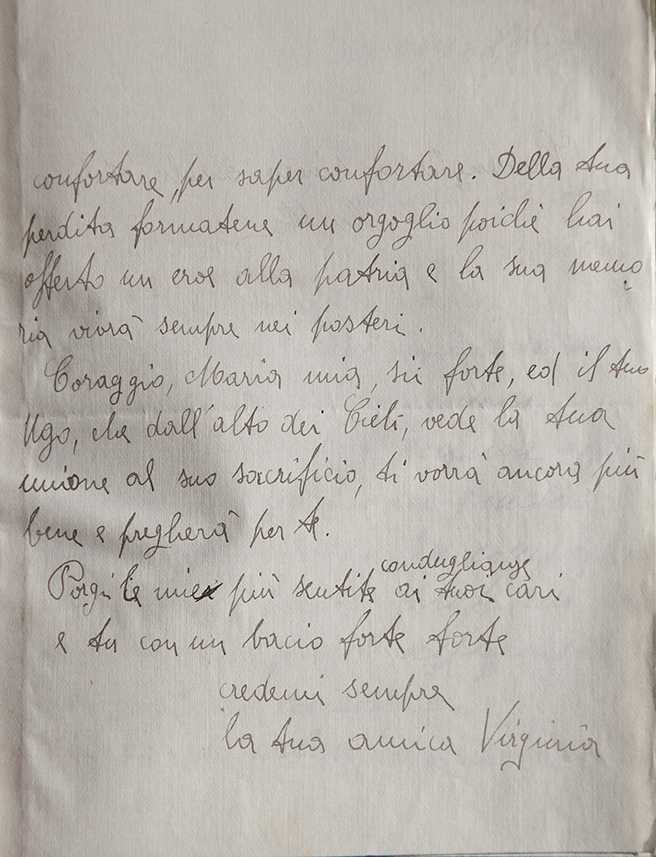 confortare, per saper confortare. Della tua
perdita formatene un orgoglio poichè hai
offerto un eroe alla patria e la sua memo
ria vivrà sempre nei posteri.
Coraggio, Maria mia, sii forte, ed il tuo
Ugo, che dall'alto dei Cieli, vede la tua
unione al suo sacrificio, ti vorrà ancora più
bene e pregherà per te.
condoglianze
Porgi le mie più sentite ai tuoi cari
e tu con un bacio forte forte
credemi sempre
la tua amica Virginia